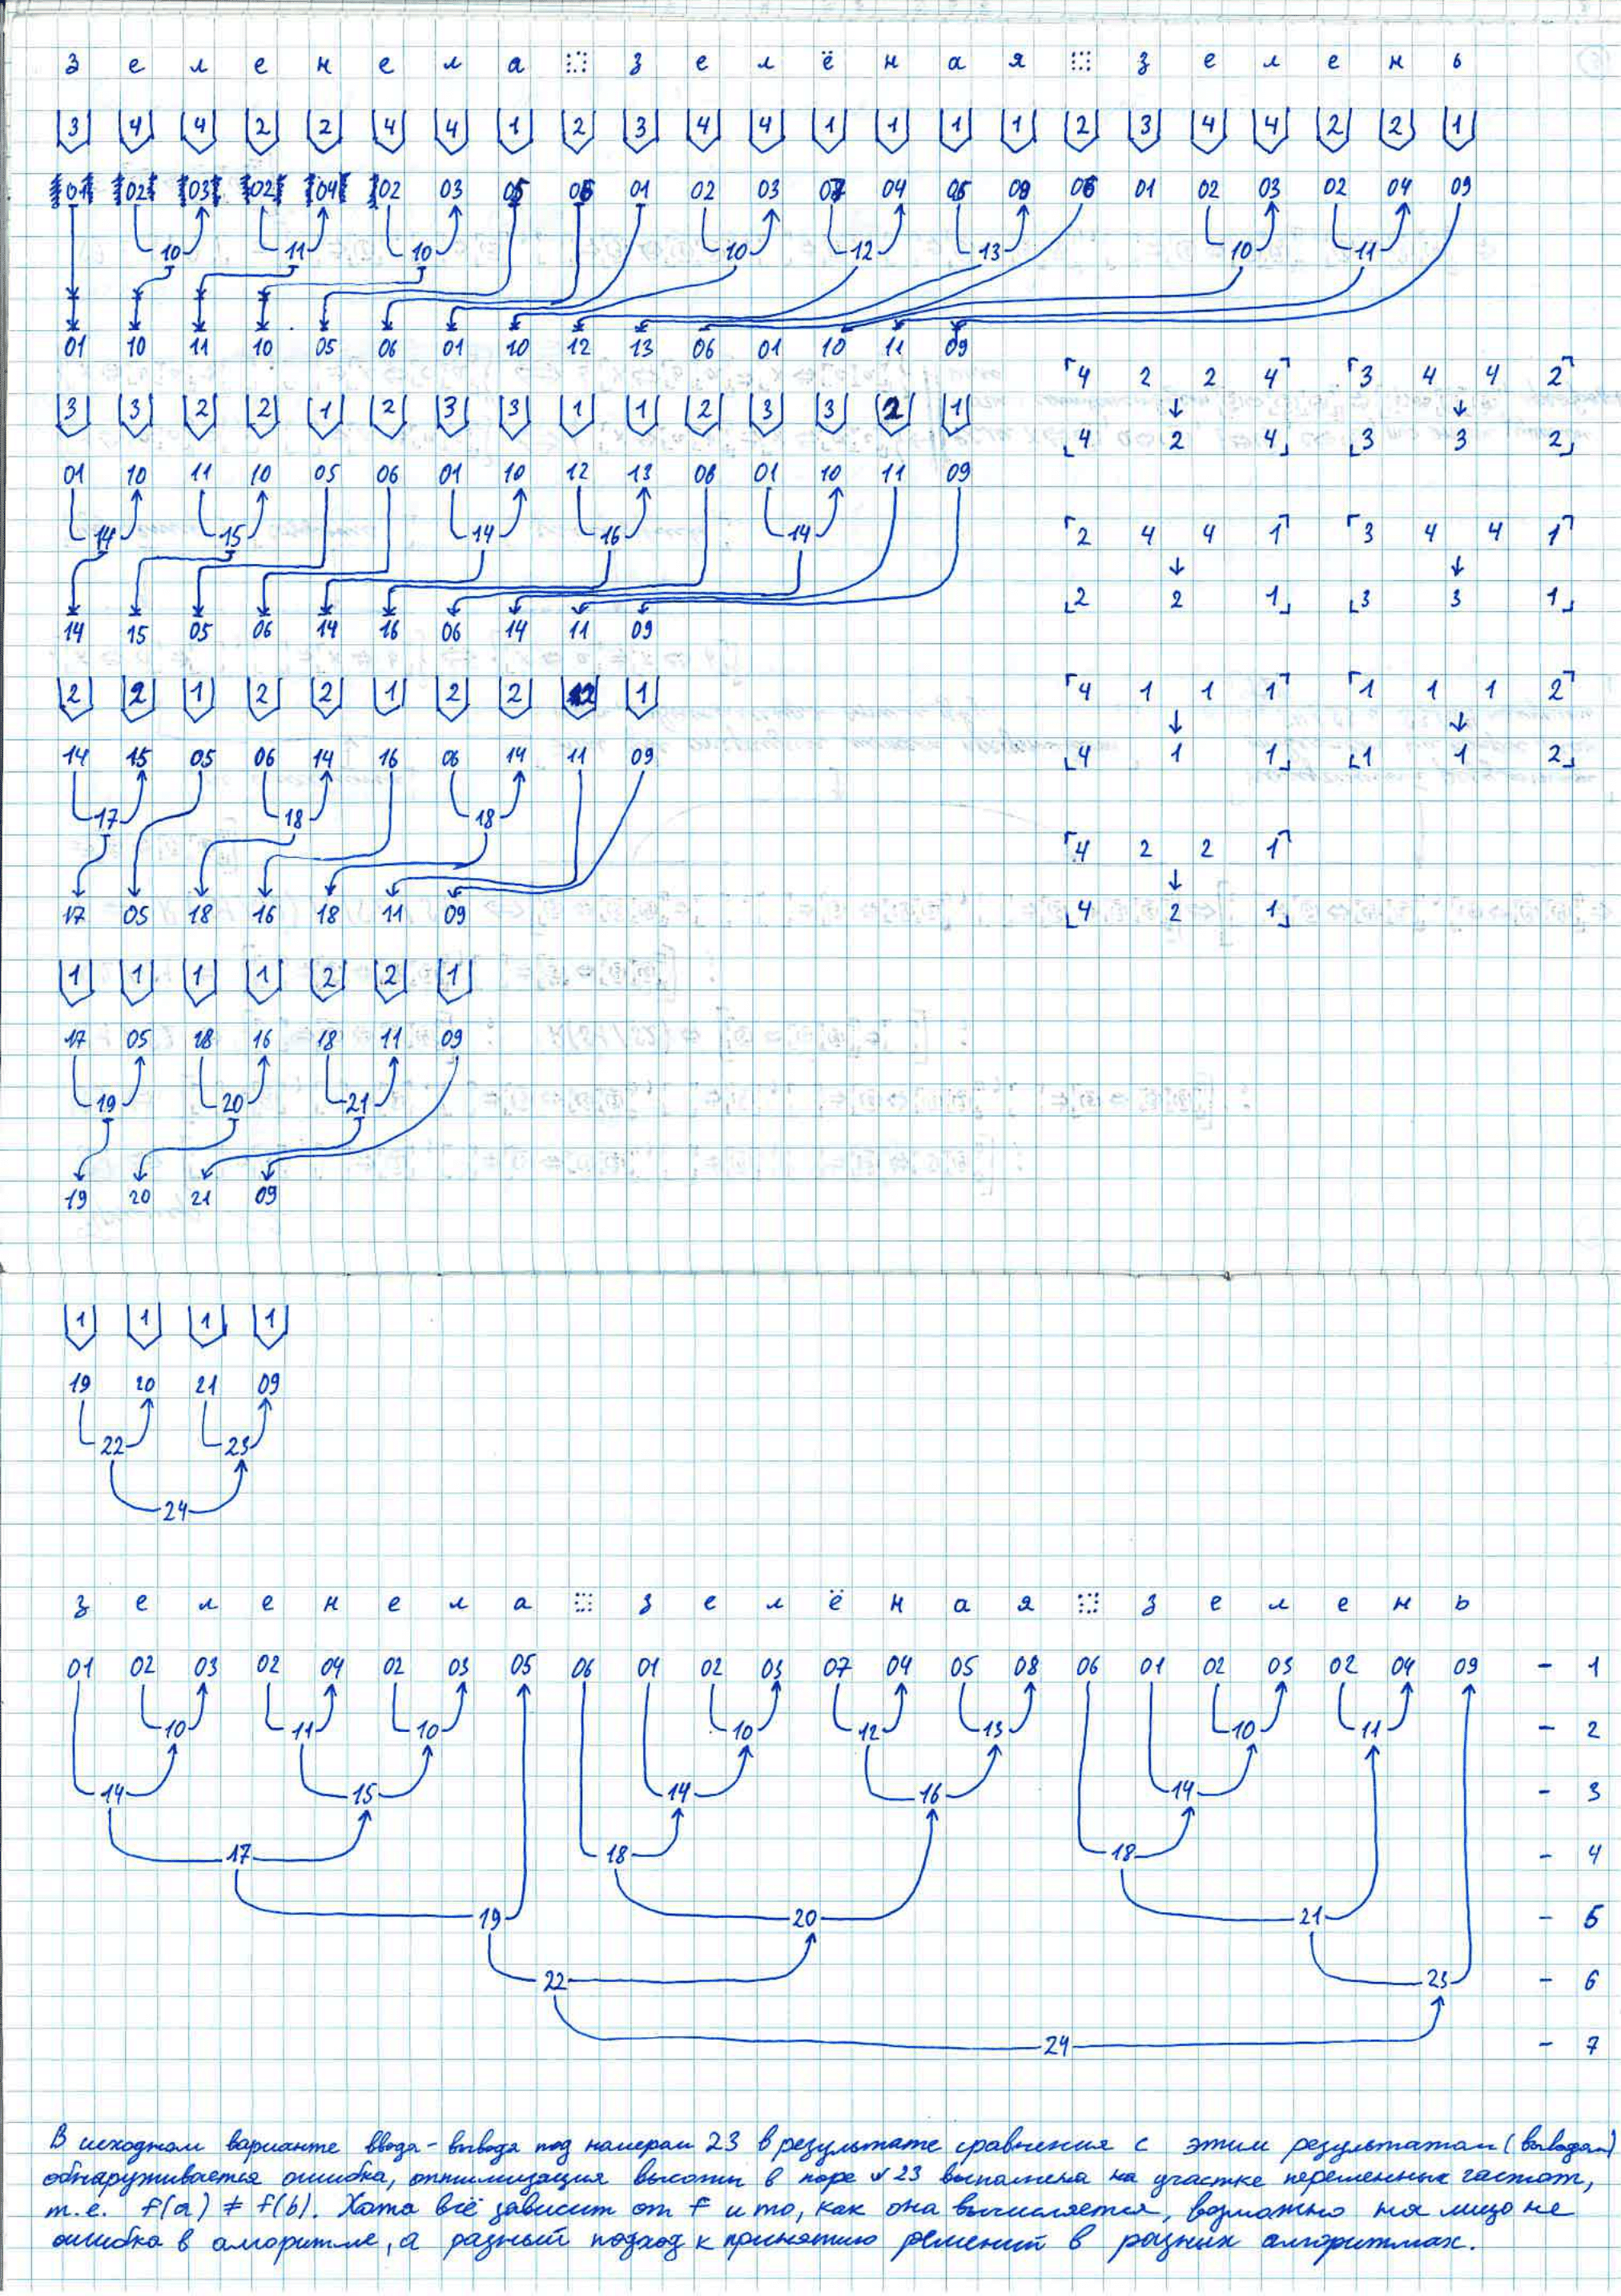 з е л е н е л а з е л ё н а я з е л е н ь
3 4 4 2 2 4 4 1 2 3 4 4 1 1 1 1 2 3 4 4 2 2 1
01 02 03 02 04 02 03 05 06 01 02 03 07 04 05 08 06 01 02 03 02 04 09
10 11 10 10 12 13 10 11
01 10 11 10 05 06 01 10 12 13 06 01 10 11 09
4 2 2 4 3 4 4 2
3 3 2 2 1 2 3 3 1 1 2 3 3 2 1
4 2 4 3 3 2
01 10 11 10 05 06 01 10 12 13 06 01 10 11 09
14 15 14 16 14
2 4 4 1 3 4 4 1
2 2 1 3 3 1
14 15 05 06 14 16 06 14 11 09
2 2 1 2 2 1 2 2 2 1
4 1 1 1 1 1 1 2
14 15 05 06 14 16 06 14 11 09
4 1 1 1 1 2
17 18 18
4 2 2 1
17 05 18 16 18 11 09
4 2 1
1 1 1 1 2 2 1
17 05 18 16 18 11 09
19 20 21
19 20 21 09
1 1 1 1
19 20 21 09
22 23
24
з е л е н е л а з е л ё н а я з е л е н ь
01 02 03 02 04 02 03 05 06 01 02 03 07 04 05 08 06 01 02 03 02 04 09 - 1
10 11 10 10 12 13 10 11 - 2
14 15 14 16 14 - 3
17 18 18 - 4
19 20 21 - 5
22 23 - 6
24 - 7
В исходном варианте ввода-вывода под номером 23 в результате сравнения с этим результатом (выводом)
обнаруживается ошибка, оптимизация высоты в паре № 23 выполнена на участке переменных частот,
т.е. f(a) ≠ f(b). Хотя всё зависит от f и то, как она вычисляется, возможно на лицо не
ошибка в алгоритме, а разный подход к принятию решений в разных алгоритмах.